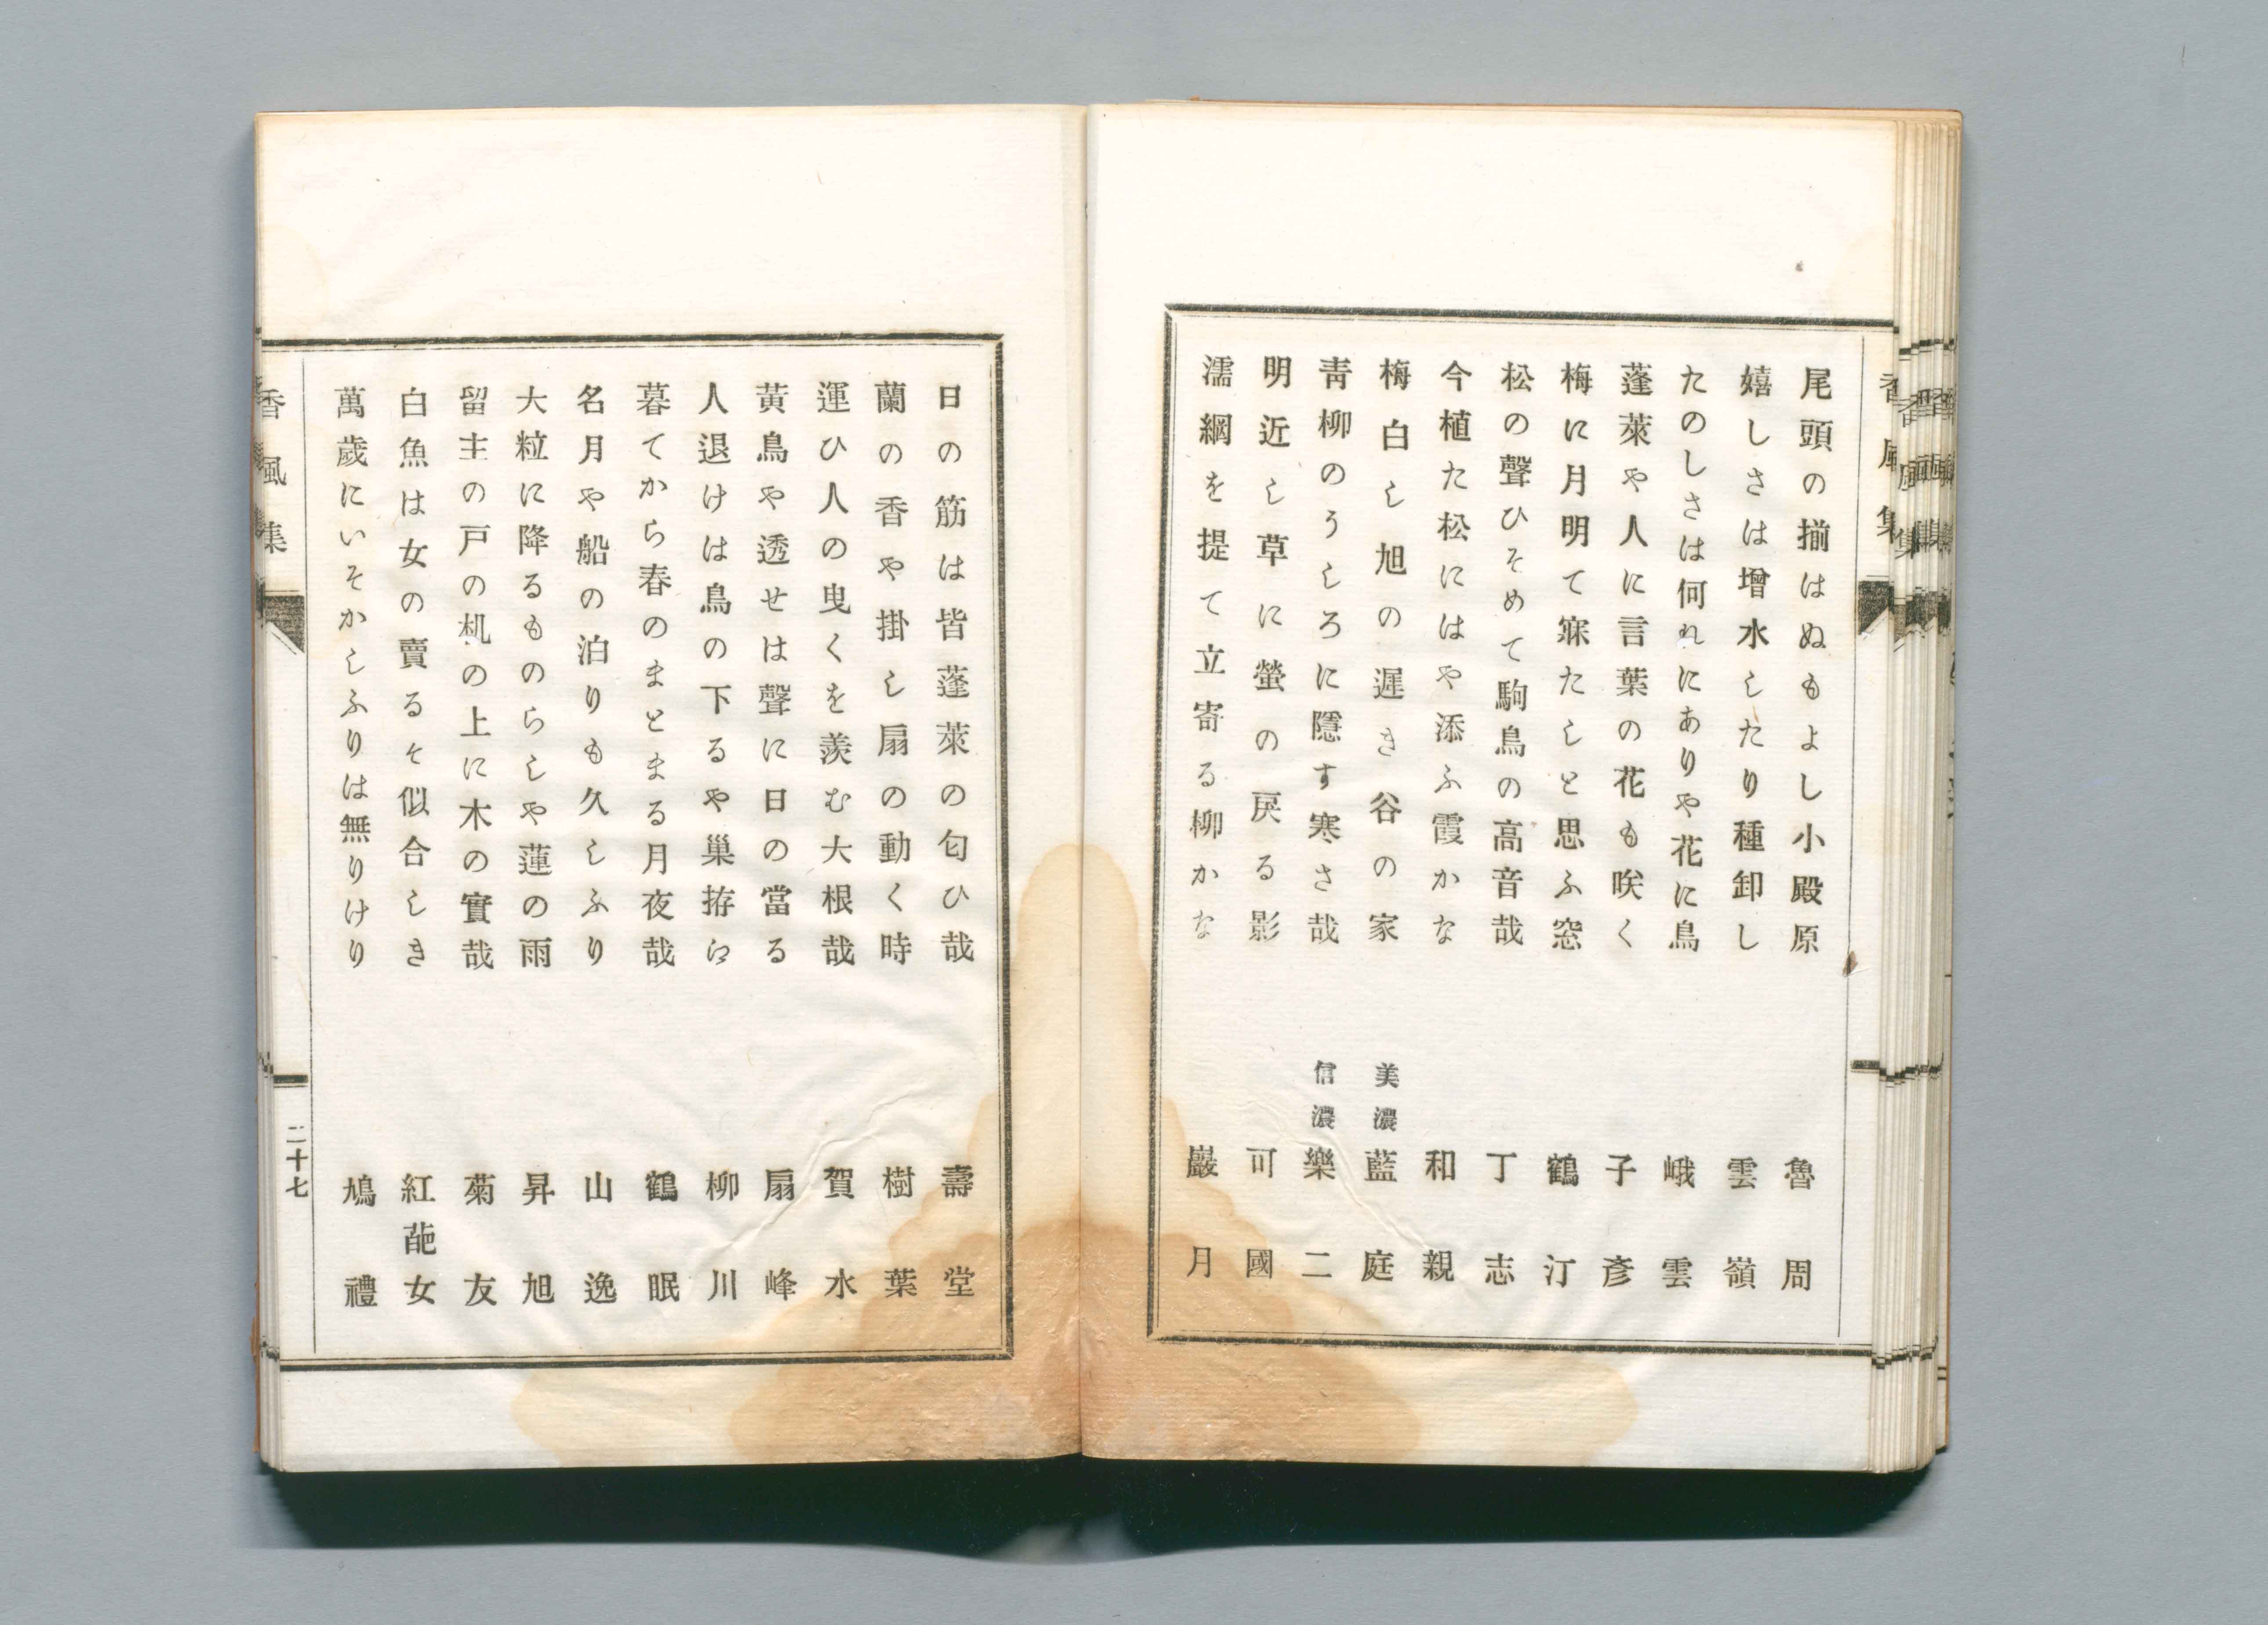 尾頭の揃はぬもよし小殿原 魯周
嬉しさは增水したり種卸し 雲嶺
たのしさは何れにありや花に鳥 峨雲
蓬萊や人に言葉の花も咲く 子彥
梅に月明て寐たしと思ふ窓 鶴汀
松の聲ひそめて駒鳥の高音哉 丁志
今植た松にはや添ふ霞かな 和親
梅白し旭の遲き谷の家 美濃 藍庭
靑柳のうしろに隱す寒さ哉 信濃 樂二
明近し草に螢の戾る影 可國
濡綱を提て立寄る柳かな 巖月
日の筋は皆蓬萊の匂ひ哉 壽堂
蘭の香や掛し扇の動く時 樹葉
運ひ人の曳くを羨む大根哉 賀水
黃鳥や透せは聲に日の當る 扇峰
人退けは鳥の下るや巢拵に 柳川
暮てから春のまとまる月夜哉 鶴眠
名月や船の泊りも久しふり 山逸
大粒に降るものらしや蓮の雨 昇旭
留主の戸の机の上に木の實哉 菊友
白魚は女の賣るそ似合しき 紅葩女
萬歲にいそかしふりは無りけり 鳩禮
香風集
二十七